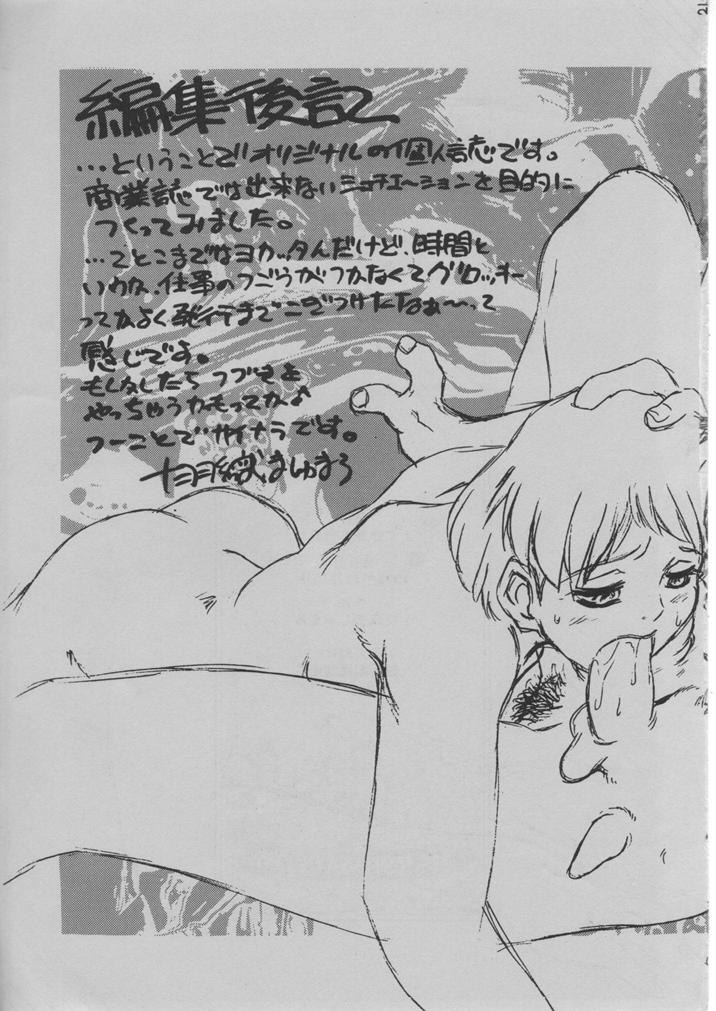 編集後記
…ということでオリジナルの個人誌です。
商業誌では出来ないシュチエーションを目的に
つくってみました。
…とこまではヨカッタんだけど、時間と
いうか、仕事のつごうがつかなくてグロッキー
ってかよく発行までこぎつけたなぁ〜って
感じです。
もしかしたらつづきも
やっちゃうかもってか♪
つーことでサイナラです。
まゆまろ
21